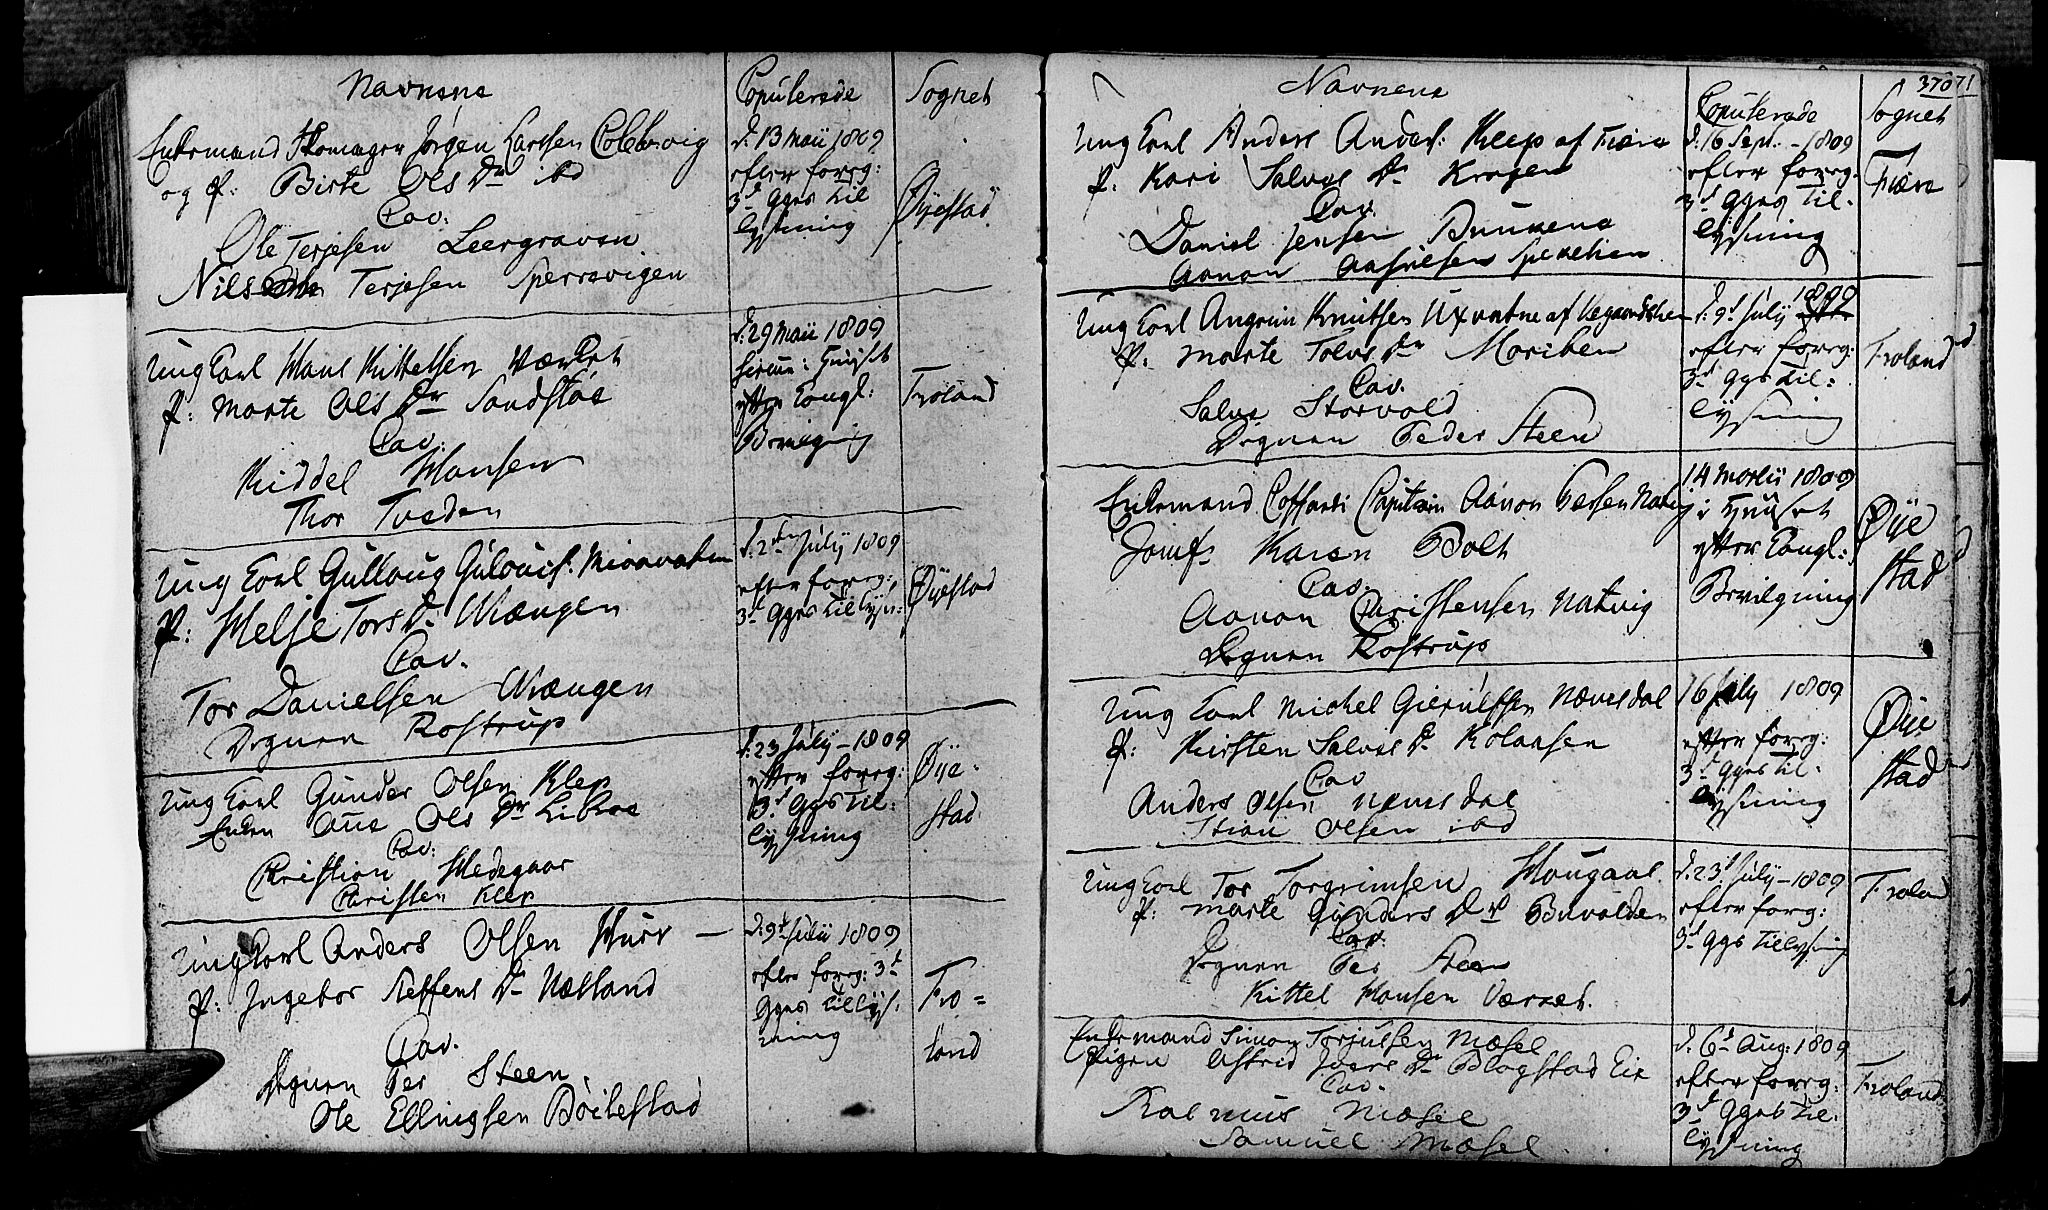 Navnene
Copulerede
Sognet
Enkemand Skomager Jørgen Larsen Colebievig
og P: Birte Ols Dr ibd
Cav:
Ole Terjesen Leergraven
Nils Terjesen Sperrevigen
d: 13 Maii 1809
efter foreg:
3d Ggs til
lysning
Øyestad
Ung Karl Hans Kittelsen Værket
P: Marte Ols Dr Sandstøe
Cav:
Kiddel Hansen
Thor Tveden
d: 29 Maii 1809
hiem: i Huuset
efter Kongl:
Bevilgning
Froland
Ung Karl Gullaug Gulouvs: Mioevaten
P: Helje Tors Dr Wrængen
Cav.
Tor Danielsen Wrængen
Degnen Rostrup
d: 2den July 1809
efter foreg:
3d Ggs tillysn:
Øyestad
Ung Karl Gunder Olsen Klep
Enken Aase Ols Dr Libroe
Cav:
Christian Hedegaar
Christen Klep
d: 23 July - 1809
efter foreg:
3d Ggs til-
lysning
Øye-
stad
Ung Karl Anders Olsen Hurv —
P: Ingebor Steffens Dr Næsland
Cav.
Degnen Per Steen.
Ole Ellingsen Bøilestad
d: 9d Julii 1809
efter foreg: 3d
Ggs tillys-
ning
Fro=
land
370 71
Navnene
Copulerede
Sognet
Ung Karl Anders Anders: Kleep af Fiære
P: Kari Salves Dr Krogen
Cav.
Daniel Jensen Buukene
Aanon Aasulfsen Spekelien
d: 16 Sept. - 1809
efter foreg.
3d Ggs til-
lysning
Fiære
Ung Karl Angrim Knutsen Uxvatne af Vegaardshei
P: Marte Tolvs Dr Moriben
Cav.
Salve Storvold
Degnen Peder Steen
d: 9d July 1809
efter foreg:
3d Ggs til-
lysning
Froland
Enkemand Coffardi Capitain Aanon Natvig
Jomfr Karen Bolt
Cav.
Aanon Christensen Natvig
Degnen Rostrup
14 Martii 1809
i Huuset
efter Kongl:
Bevilgning
Øye
stad
Ung Karl Michel Gierulfsen Nævesdal
P: Kirsten Salves Dr Kolaasen
Cav
Anders Olsen Nævesdal
Stian Olsen ibd
16 July 1809
efter foreg:
3d Ggs til-
lysning
Øye
stad
Ung Karl Tor Torgrimsen Hougaas.
P: Marte Gunders Dr Buvolden
Cav:
Degnen Per Steen
Kittel Hansen Værket.
d. 23d July - 1809
efter foreg:
3d Ggs tillysning
Froland
Enkemand Simon Torjulsen Mæsel
Pigen Astrid Jvers Dr Blagstad Eie
Cav.
Rasmus Mæsel
Samuel Mæsel.
d. 6d Aug: 1809
efter foreg:
3d Ggs til-
lysning
Froland